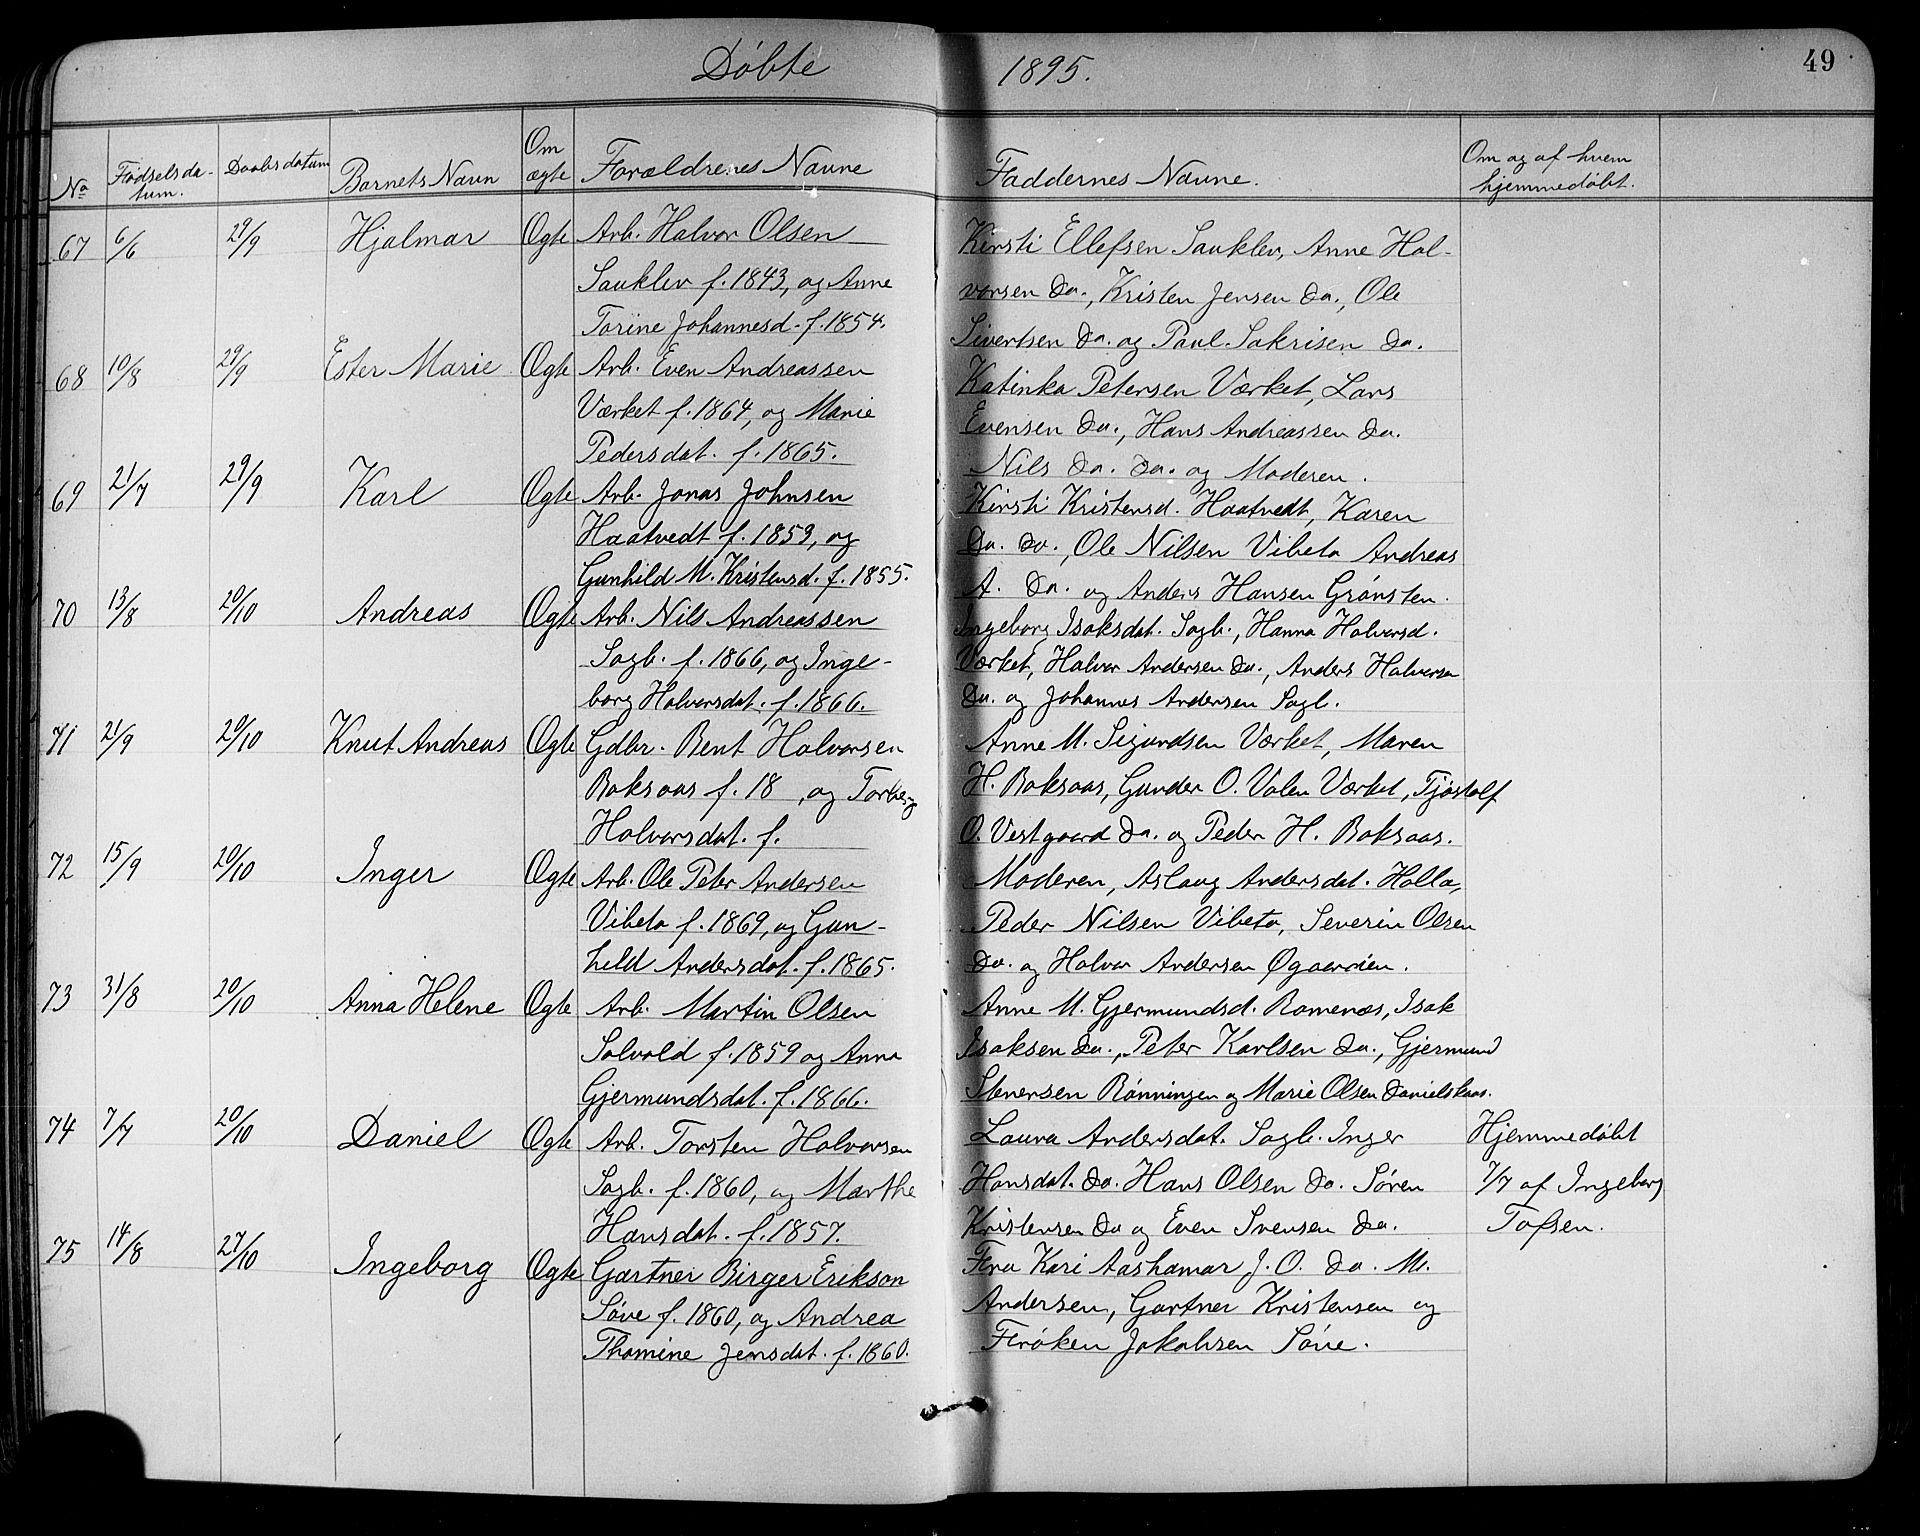 Døbte 1895. 49
No Fødselsda- Daabsdatum Barnets Navn Om Forældrenes Navne Faddernes Navne. Om og af hvem
tum. ægte hjemmedøbt.
67 6/6 29/9 Hjalmar Ægte Arb. Halvor Olsen Kirsti Ellefsen Sauklev, Anne Hal-
Sauklev f. 1843, og Anne vorsen Do., Kristen Jensen Do., Ole
Torine Johannesd. f. 1854. Sivertsen Do. og Paul Sakrisen Do.
68 10/8 29/9 Ester Marie Ægte Arb. Even Andreassen Katinka Petersen Værket, Lars
Værket f. 1864, og Marie Evensen Do., Hans Andreassen Do.
Pedersdat. f. 1865. Nils Do. Do. og Moderen.
69 21/7 29/9 Karl Ægte Arb. Jonas Johnsen Kirsti Kristensd. Haatvedt, Karen
Haatvedt f. 1859, og Do. Do., Ole Nilsen Vibeto Andreas
Gunhild M. Kristensd. f. 1855. A. Do. og Anders Hansen Grønsten.
70 13/8 20/10 Andreas Ægte Arb. Nils Andreassen Ingeborg Isaksdat. Sagb., Hanna Halvorsd.
Sagb. f. 1866, og Inge- Værket, Halvor Andersen Do., Anders Halvorsen
borg Halvorsdat. f. 1866. Do. og Johannes Andersen Sagb.
71 21/9 20/10 Knut Andreas Ægte Gdbr. Bent Halvorsen Anne M. Sigurdsen Værket, Maren
Boksaas f. 18 , og Torbe-g H. Boksaas, Gunder O. Valen Værket, Tjøstolf
Halvorsdat. f. O. Vestgaard Do. og Peder H. Boksaas.
72 15/9 20/10 Inger Ægte Arb. Ole Peter Andersen Moderen, Aslaug Andersdat. Holla,
Vibeto f. 1869, og Gun- Peder Nilsen Vibeto, Severin Olsen
hild Andersdat. f. 1865. Do. og Halvor Andersen
73 31/8 20/10 Anna Helene Ægte Arb. Martin Olsen Anne M. Gjermundsd. Romenæs, Isak
Solvold f. 1859 og Anna Isaksen Do., Peter Karlsen Do., Gjermund
Gjermundsdat. f. 1866. Stenersen Rønningen og Marie Olsen Danielskaas.
74 7/7 20/10 Daniel Ægte Arb. Torsten Halvorsen Laura Andersdat. Sagb. Inger Hjemmedøbt
Sagb. f. 1860, og Marthe Hansdat. Do. Hans Olsen Do. Søren 7/7 af Ingeborg
Hansdat. f. 1857. Kristensen Do og Even Svensen Do. Tofsen.
75 14/8 27/10 Ingeborg Ægte Gartner Birger Erikson Fru Kari Aashamar J. O. Do. M.
Søve f. 1860, og Andrea Andersen, Gartner Kristensen og
Thomine Jensdat. f. 1860. Frøken Jakobsen Søve.